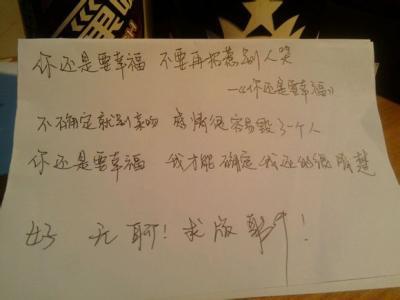 你还是要幸福 不要再招惹别人哭
—《你还是要幸福》
不确定就别亲吻 感情很容易毁了一个人
你还是要幸福 我才能确定我还的很清楚
好 无聊！求版聊！